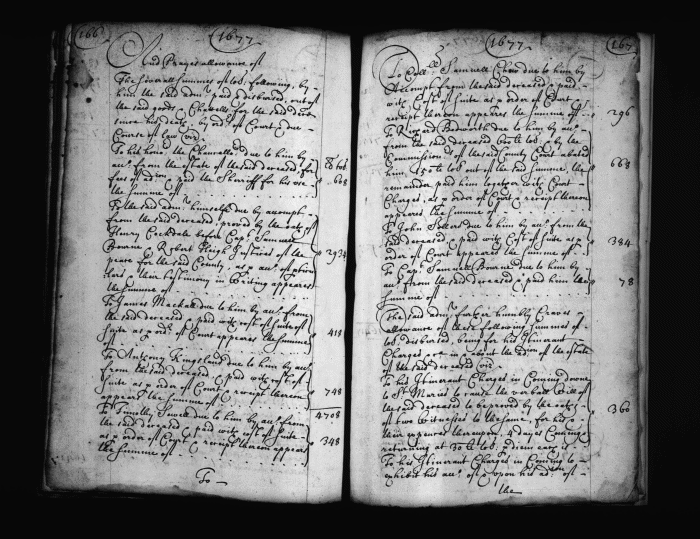 166
1677
And Prayes allowance of
The severall summes of tob: following, by
him the said adm.r p.d & disbursed, out of
the said goods & Chattells of the said dece.d
since his death, by ord.r of Court & due
Course of law viz.
To his hon.r the Chancello.r due to him by
acc.t from the estate of the said deceased, for
fees of adcon & paid the Sherriff for his use
the summe of
lb tob
668
To the said adm.r himselfe due by accompt
from the said deceased proved by the oath of
Henry Cockdale before Cap.t Samuel
Bourne & Robert Heigh Justices of the
peace for the said County, as p acc.t & upon
their testimony in Writing appears
the summe of
2934
To James Mackall due to him by acc.t from
the said deceased & paid with cost of suite of
suite as p ord.r of Court appears the summe
of
418
To Antony Kingsland due to him by acc.t
from the said deceased & paid with cost of
suite as p order of Court & receipt thereon
appears the summe of
748
4708
To Timothy Sewell due to him by acc.t from
the said deceased & paid with cost of suite
as p order of Court & receipt thereon appears
the summe of
348
To
1677
167
To Coll: Samuell Chew due to him by
Accompt from the said deceased & paid
with Cost of suite as p order of Court &
receipt thereon appears the summe of
296
To Richard Bedworth due to him by acc.t
from the said deceased tob: by the
Commission.rs of the said County Court abated
him 150 lb tob out of the said summe, the
remainder paid him together with Court
Charges, as p order of Court & receipt thereon
appears the summe of
668
To John Sollers due to him by acc.t from the
said deceased & paid with Cost of suite as p
order of Court appears the summe of
384
To Cap.t Samuell Bourne due to him by
acc.t from the said deceased & paid him the
summe of
78
The said adm.r further humbly Craves
allowance of these following summes of
tob disbursed, being for his Itinerant
Charges in & about the adcon of the estate
of the said deceased viz.
To his Itinerant Charges in Coming downe
to St Maries to cause the verball Will of
the said deceased to be proved by the oath
of two Witnesses to the same, for his &
their expences thereon days Coming &
returning at 30 lb tob p diem each
360
To his Itinerant Charges in Coming to
exhibit his acc.t & upon his of
the